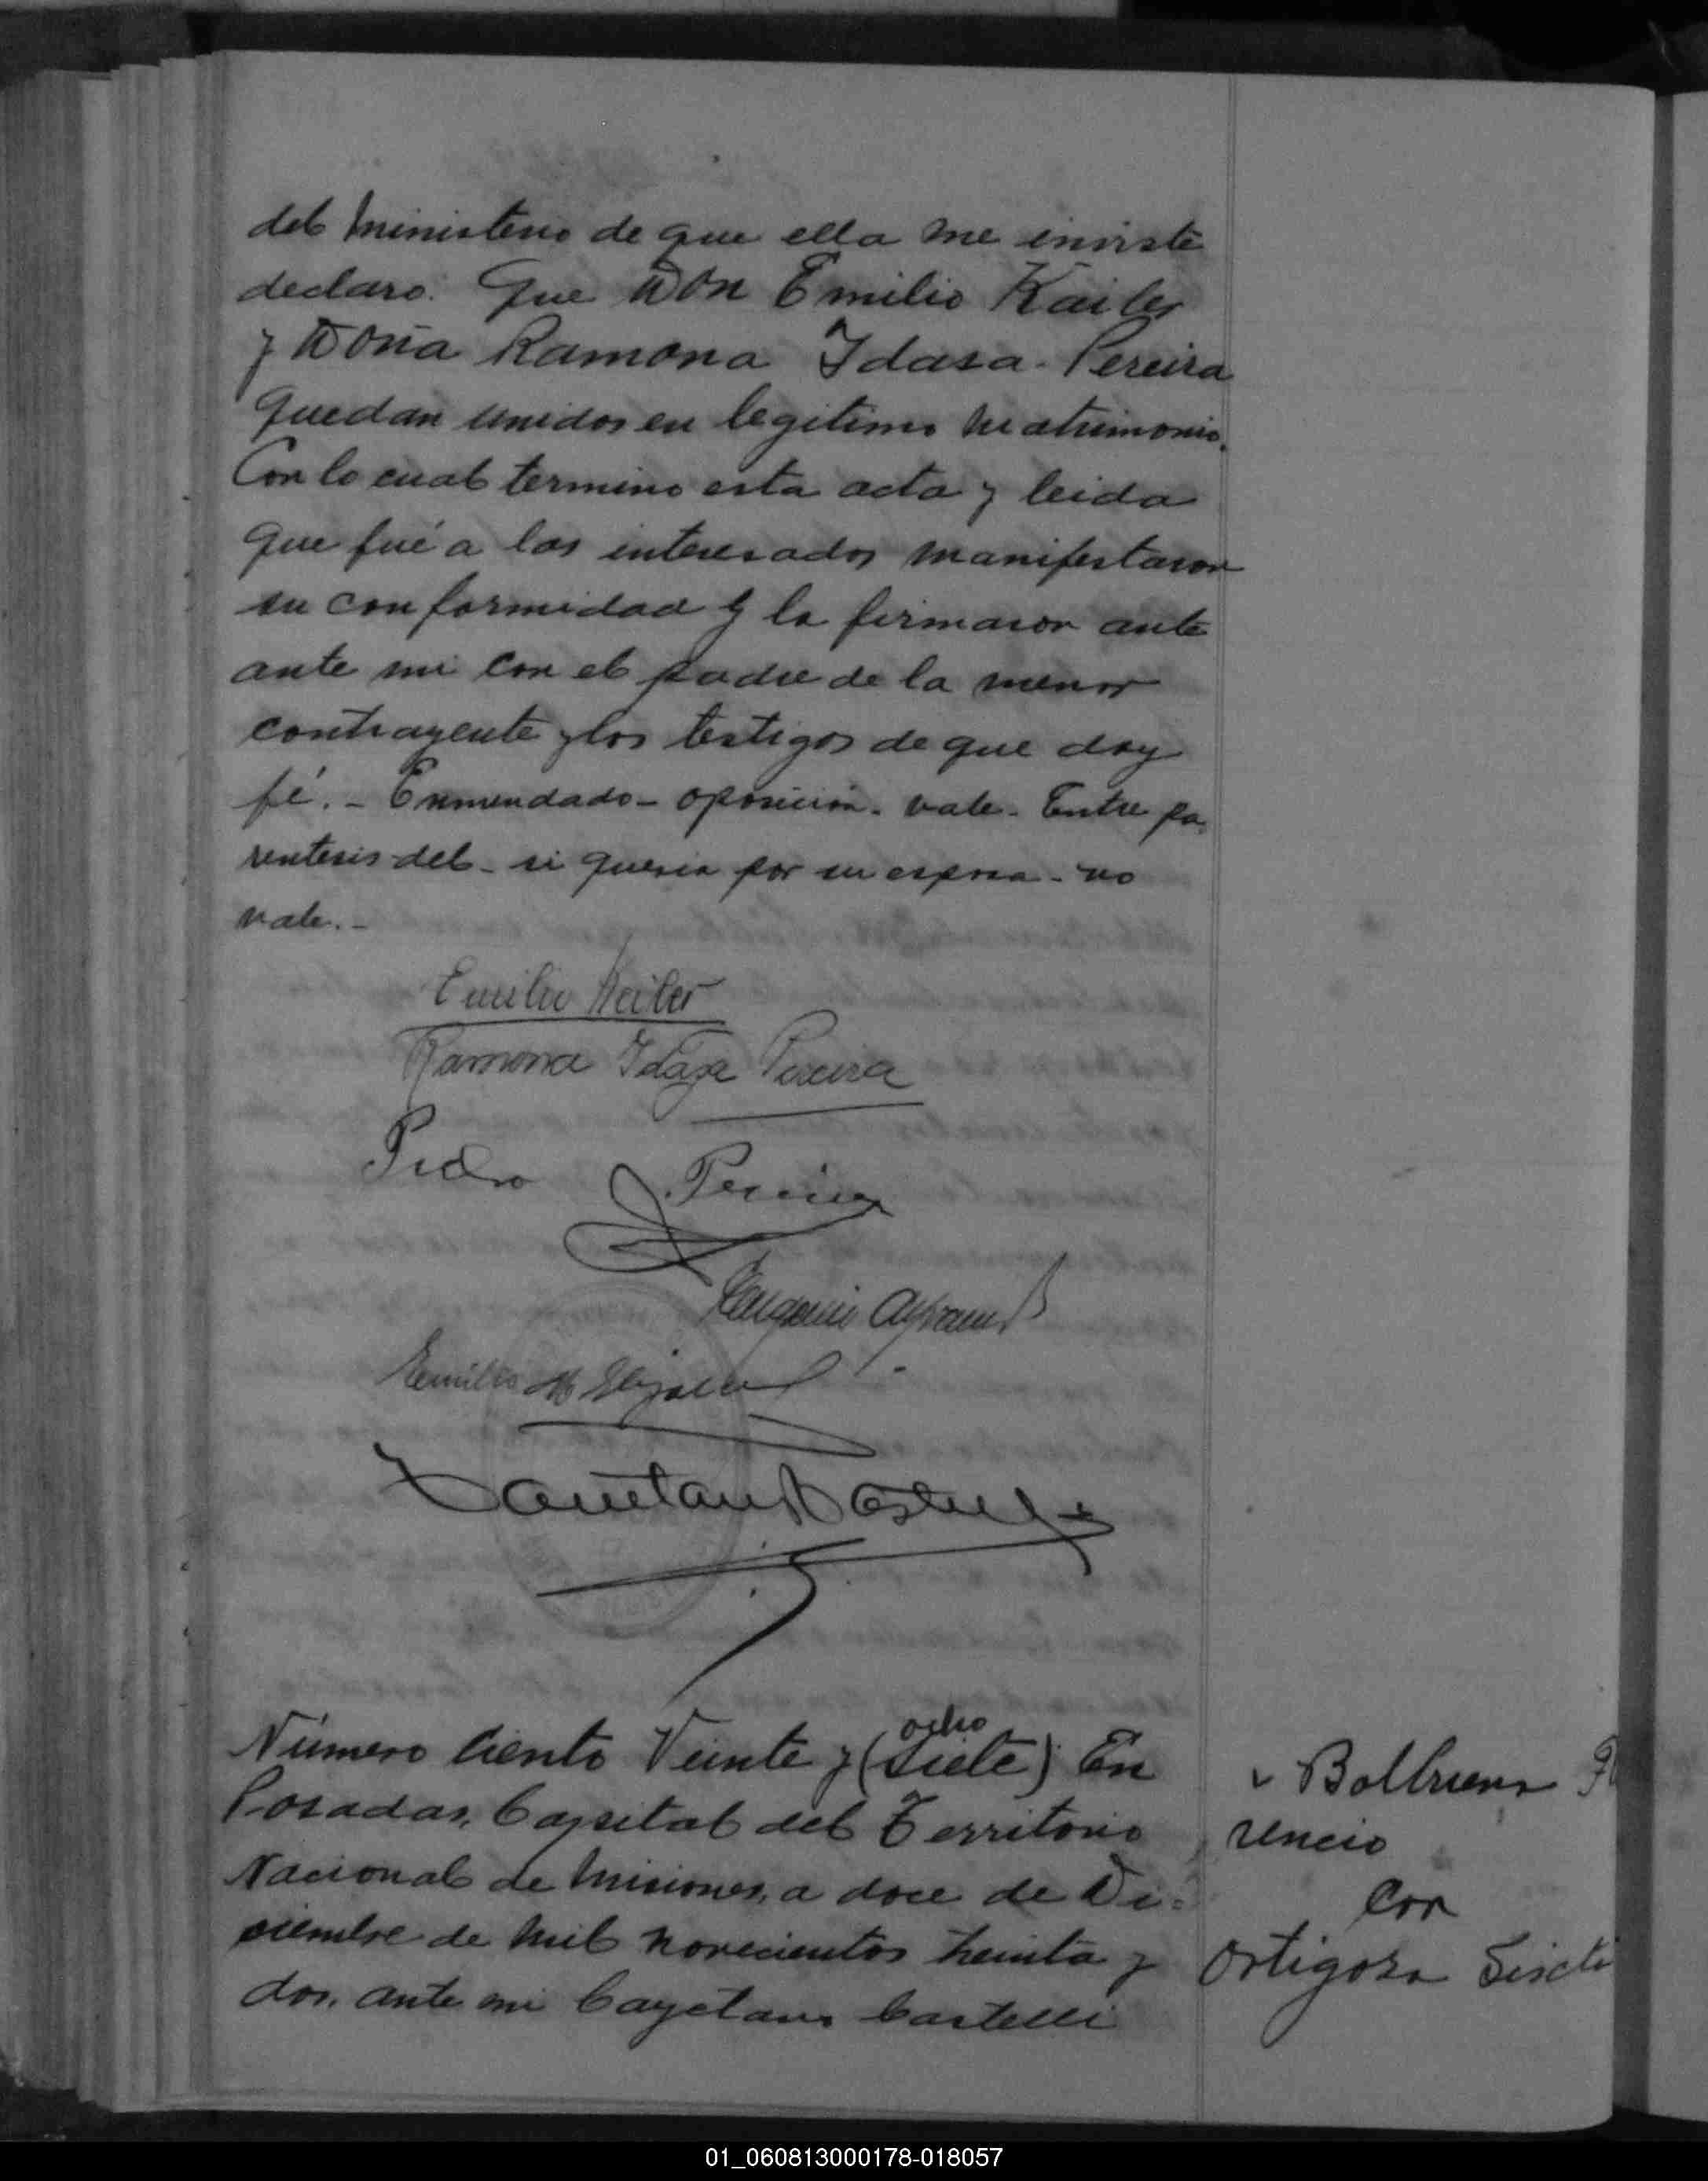 del ministerio de que ella me inviste
declaro: Que Don Emilio Kailer
y Doña Ramona Idasa Pereira
quedan unidos en legitimo matrimonio.
Con lo cual termino esta acta y leida
que fué a los interesados manifestaron
su conformidad y la firmaron ante
ante mi con el padre de la menor
contrayente y los testigos de que doy
fé.- Enmendado- oposición- vale- Entre pa-
rentesis-del- si queria por su esposa- no
vale.-
Emilio Keiler
Ramona Idasa Pereira
Pedro Pereira
Eugenio
Emilio
Número Ciento Veinte y (siete) ocho En
Posadas, Capital del Territorio
Nacional de Misiones, a doce de Di-
ciembre de mil novecientos treinta y
dos, ante mi Cayetano Castelli
rencio
Con
Ortigoza
01_060813000178-018057